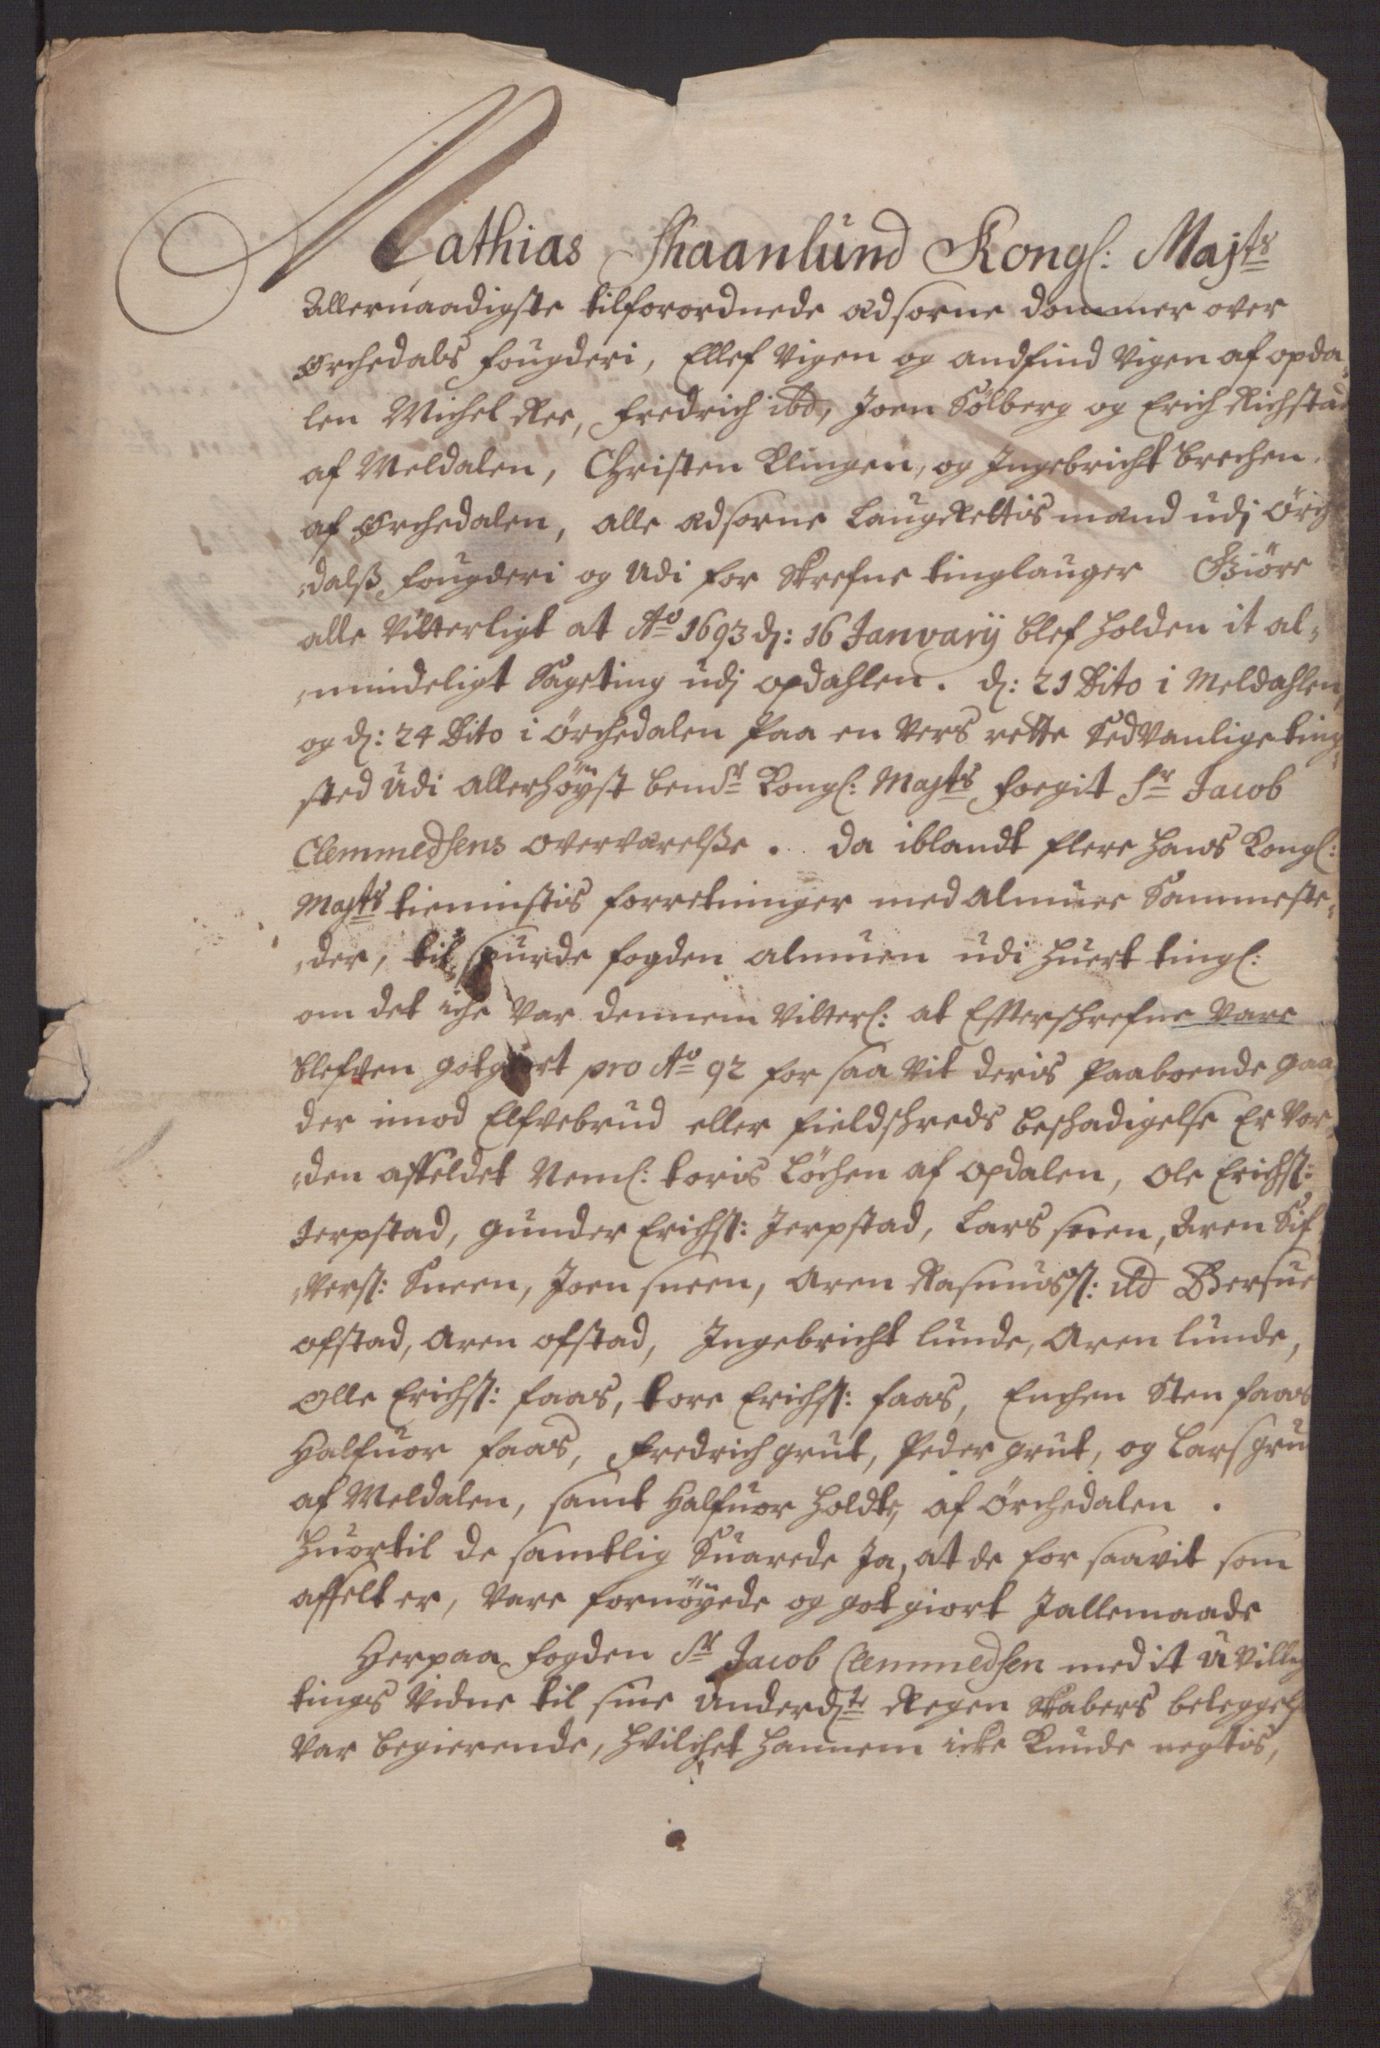 Mathias Skaanlund Kongl: Majts
Allernaadigste tilforordnede ædsorne dommer over
Ørchedals fougderi, Ellef Vigen og andfind Vigen af opda-
len Michel Ree, fredrich ibd, Joen Sølberg og Erich Richstad
af Meldalen, Christen Klingen, og Ingebricht brechen
af Ørchedalen, alle ædsorne LaugRettis mænd udj Ørch
dalß fougderi og Udi for Skrefne tinglauger Giöre
alle Vitterligt at Ao 1693 d: 16 Januarij blef holden it al-
mindeligt Sageting udj opdahlen. d: 21 Dito i Meldahlen,
og d: 24 Dito i Örchedalen Paa en Vers rette Sedvanlige ting-
sted Udi allerhöyst bende Kongl: Majts foegit Sr Jacob
Clemmedsens overværelße. da iblandt flere hans Kongl:
Majts tiennistis forretninger med almuer Sammeste-
der, til spurde fogden almuen udi huert tingl:
om det iche Var dennem Vitterl: at Efterschrefne Vare
blefven gotgiort pro Ao 92 for saa vit deris Paaboende gaa
der imod Elfvebrud eller fieldschreds beschadigelse Er Vor-
den affeldet Neml: toris Löchen af opdalen, Ole Erichs:
Jerpstad, gunder Erichs: Jerpstad, Lars sneen, Aren Sif
Vers: Sneen, Joen sneen, Aren Rasmuss: ibd Bersue
ofstad, Aren ofstad, Ingebricht lunde, Aren lunde,
Olle Erichs: faas, tore Erichs: faas, Enchen Sten faas
Halfuor faas, fredrich grut, Peder grut, og Lars gru
af Meldalen, samt Halfuor Holdte, af Örchedalen.
Huortil de samtlig Suarede Ja, at de for saavit som
affelt er, Vare fornöyede og gotgiort Jallemaade
Herpaa fogden Sr Jacob Clemmedsen med it uVillig
tings Vidne til sine Underdte Regen Skabers beleggels
Var begierende, hvilchet hannem icke Kunde negtis,